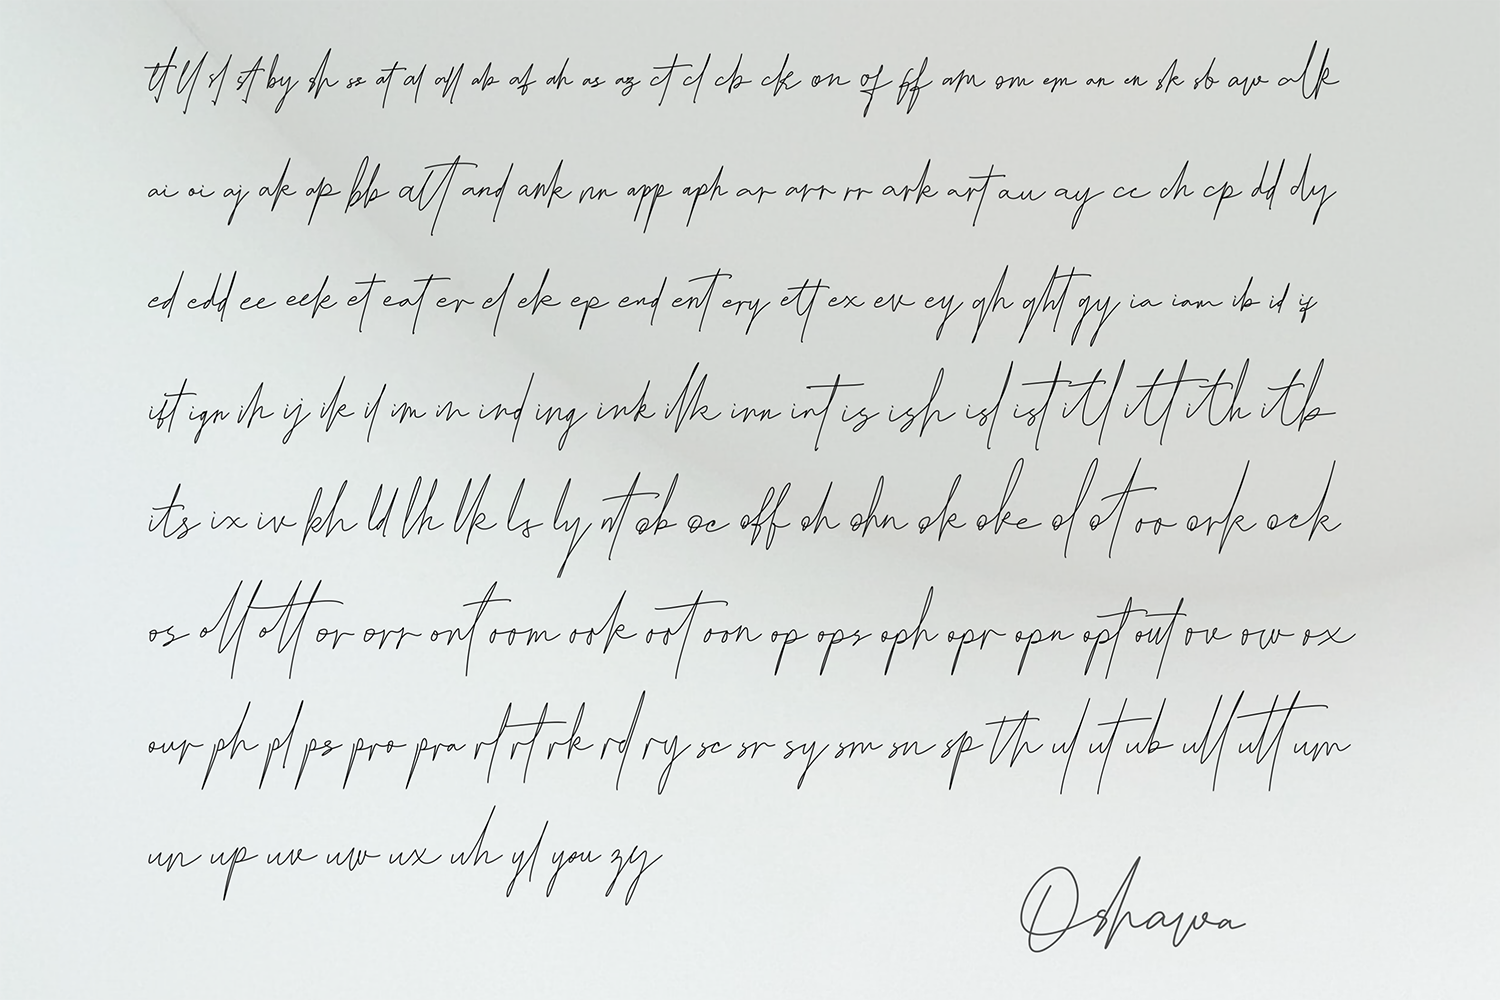 tt ll sl st by sh ss at al all ab af ah as az ct cl cb ck on of ff am om em an en sk sb aw alk
ai oi aj ak ap bb alt and ank nn app aph ar arr rr ark art au ay cc ch cp dd dy
ed edd ee eek et eat er el ek ep end ent ery ett ex ev ey gh ght gy ia iam ib id if
ift ign ih ij ik il im in ind ing ink ilk inn int is ish isl ist itl itt ith itb
its ix iv kh ld lh lk ls ly nt ob oc off oh ohn ok oke ol ot oo ork ock
os oll ott or orr ont oom ook oot oon op ops oph opr opn opt out ov ow ox
our ph pl ps pro pra rl rt rk rd ry sc sr sy sm sn sp th ul ut ub ull utt um
un up uv uw ux uh yl you zy
Oshawa